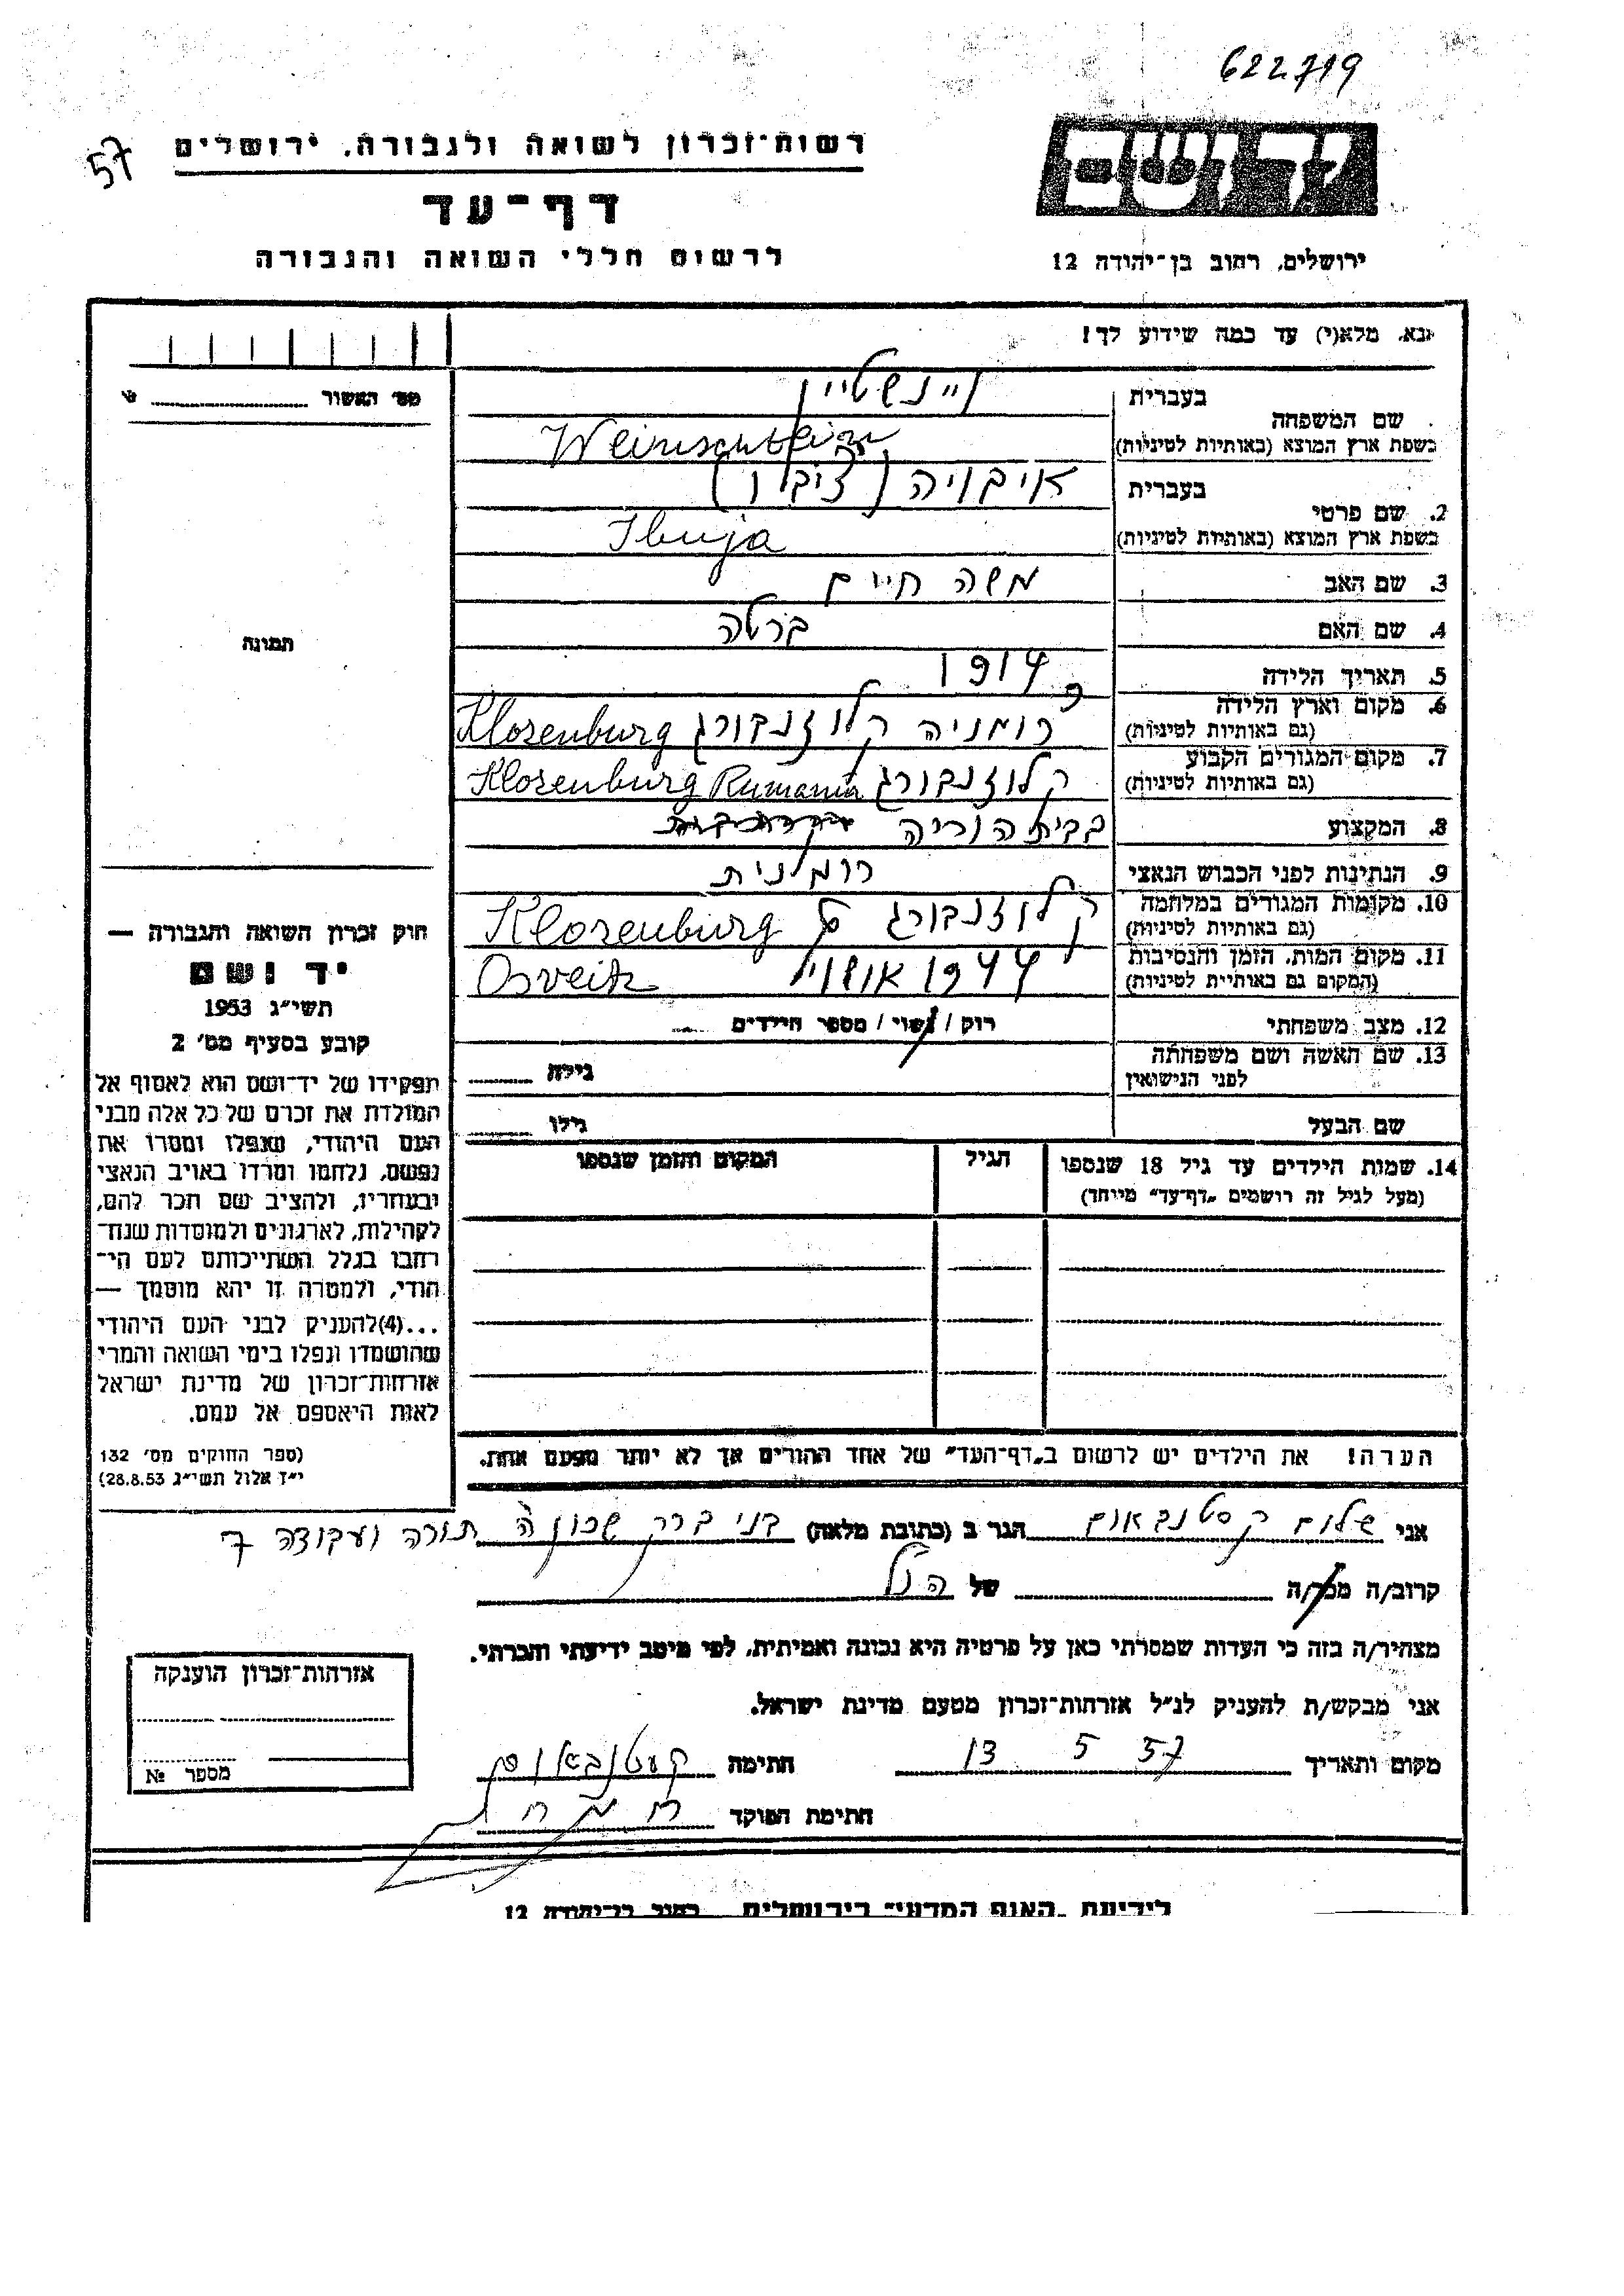 622719
57
רשות־זכרון לשואה ולגבורה, ירושלים
דף־עד
לרשום חללי השואה והגבורה
ירושלים, רחוב בן־יהודה 12
נא, מלא(י) עד כמה שידוע לך!
מס׳ האשור
תמונה
שם המשפחה
בעברית ויינשטיין
בשפת ארץ המוצא (באותיות לטיניות) Weinschtein
2. שם פרטי
בעברית איבויה (ציבלו)
בשפת ארץ המוצא (באותיות לטיניות) Ibuja
3. שם האב משה חיים
4. שם האם ברטה
5. תאריך הלידה 1914
6. מקום וארץ הלידה רומניה קלוזנבורג Klosenburg
(גם באותיות לטיניות)
7. מקום המגורים הקבוע קלוזנבורג Klosenburg Rumania
(גם באותיות לטיניות)
8. המקצוע בבית הוריה
9. הנתינות לפני הכבוש הנאצי רומנית
10. מקומות המגורים במלחמה קלוזנבורג Klosenburg
(גם באותיות לטיניות)
11. מקום המות, הזמן והנסיבות 1944 Osveitz
(המקום גם באותיית לטיניות)
12. מצב משפחתי רוק / נשוי / מספר הילדים
13. שם האשה ושם משפחתה
לפני הנישואין גילה
שם הבעל גילו
14. שמות הילדים עד גיל 18 שנספו הגיל המקום והזמן שנספו
(מעל לגיל זה רושמים „דף־עד״ מייחד)
הערה! את הילדים יש לרשום ב„דף־העד״ של אחד ההורים אך לא יותר מפעם אחת.
חוק זכרון השואה והגבורה —
יד ושם
תשי״ג 1953
קובע בסעיף מס׳ 2
תפקידו של יד־ושם הוא לאסוף אל
המולדת את זכרם של כל אלה מבני
העם היהודי, שנפלו ומסרו את
נפשם, נלחמו ומרדו באויב הנאצי
ובעוזריו, ולהציב שם וזכר להם,
לקהילות, לארגונים ולמוסדות שנח־
רחבו בגלל השתייכותם לעם הי־
הודי, ולמטרה זו יהא מוסמך —
...(4)להעניק לבני העם היהודי
שהושמדו ונפלו בימי השואה והמרי
אזרחות־זכרון של מדינת ישראל
לאות היאספם אל עמם.
(ספר החוקים מס׳ 132
י״ז אלול תשי״ג 28.8.53)
אני שלום קסטנבאום הגר ב (כתובת מלאה) בני ברק שכונה תורה ועבודה 7
קרוב/ה מכר/ה של הנ״ל
מצהיר/ה בזה כי העדות שמסרתי כאן על פרטיה היא נכונה ואמיתית, לפי מיטב ידיעתי והכרתי.
אני מבקש/ת להעניק לנ״ל אזרחות־זכרון מטעם מדינת ישראל.
מקום ותאריך 13 5 57 חתימה קעסטנבאום
חתימת הפוקד
אזרחות־זכרון הוענקה
מספר №